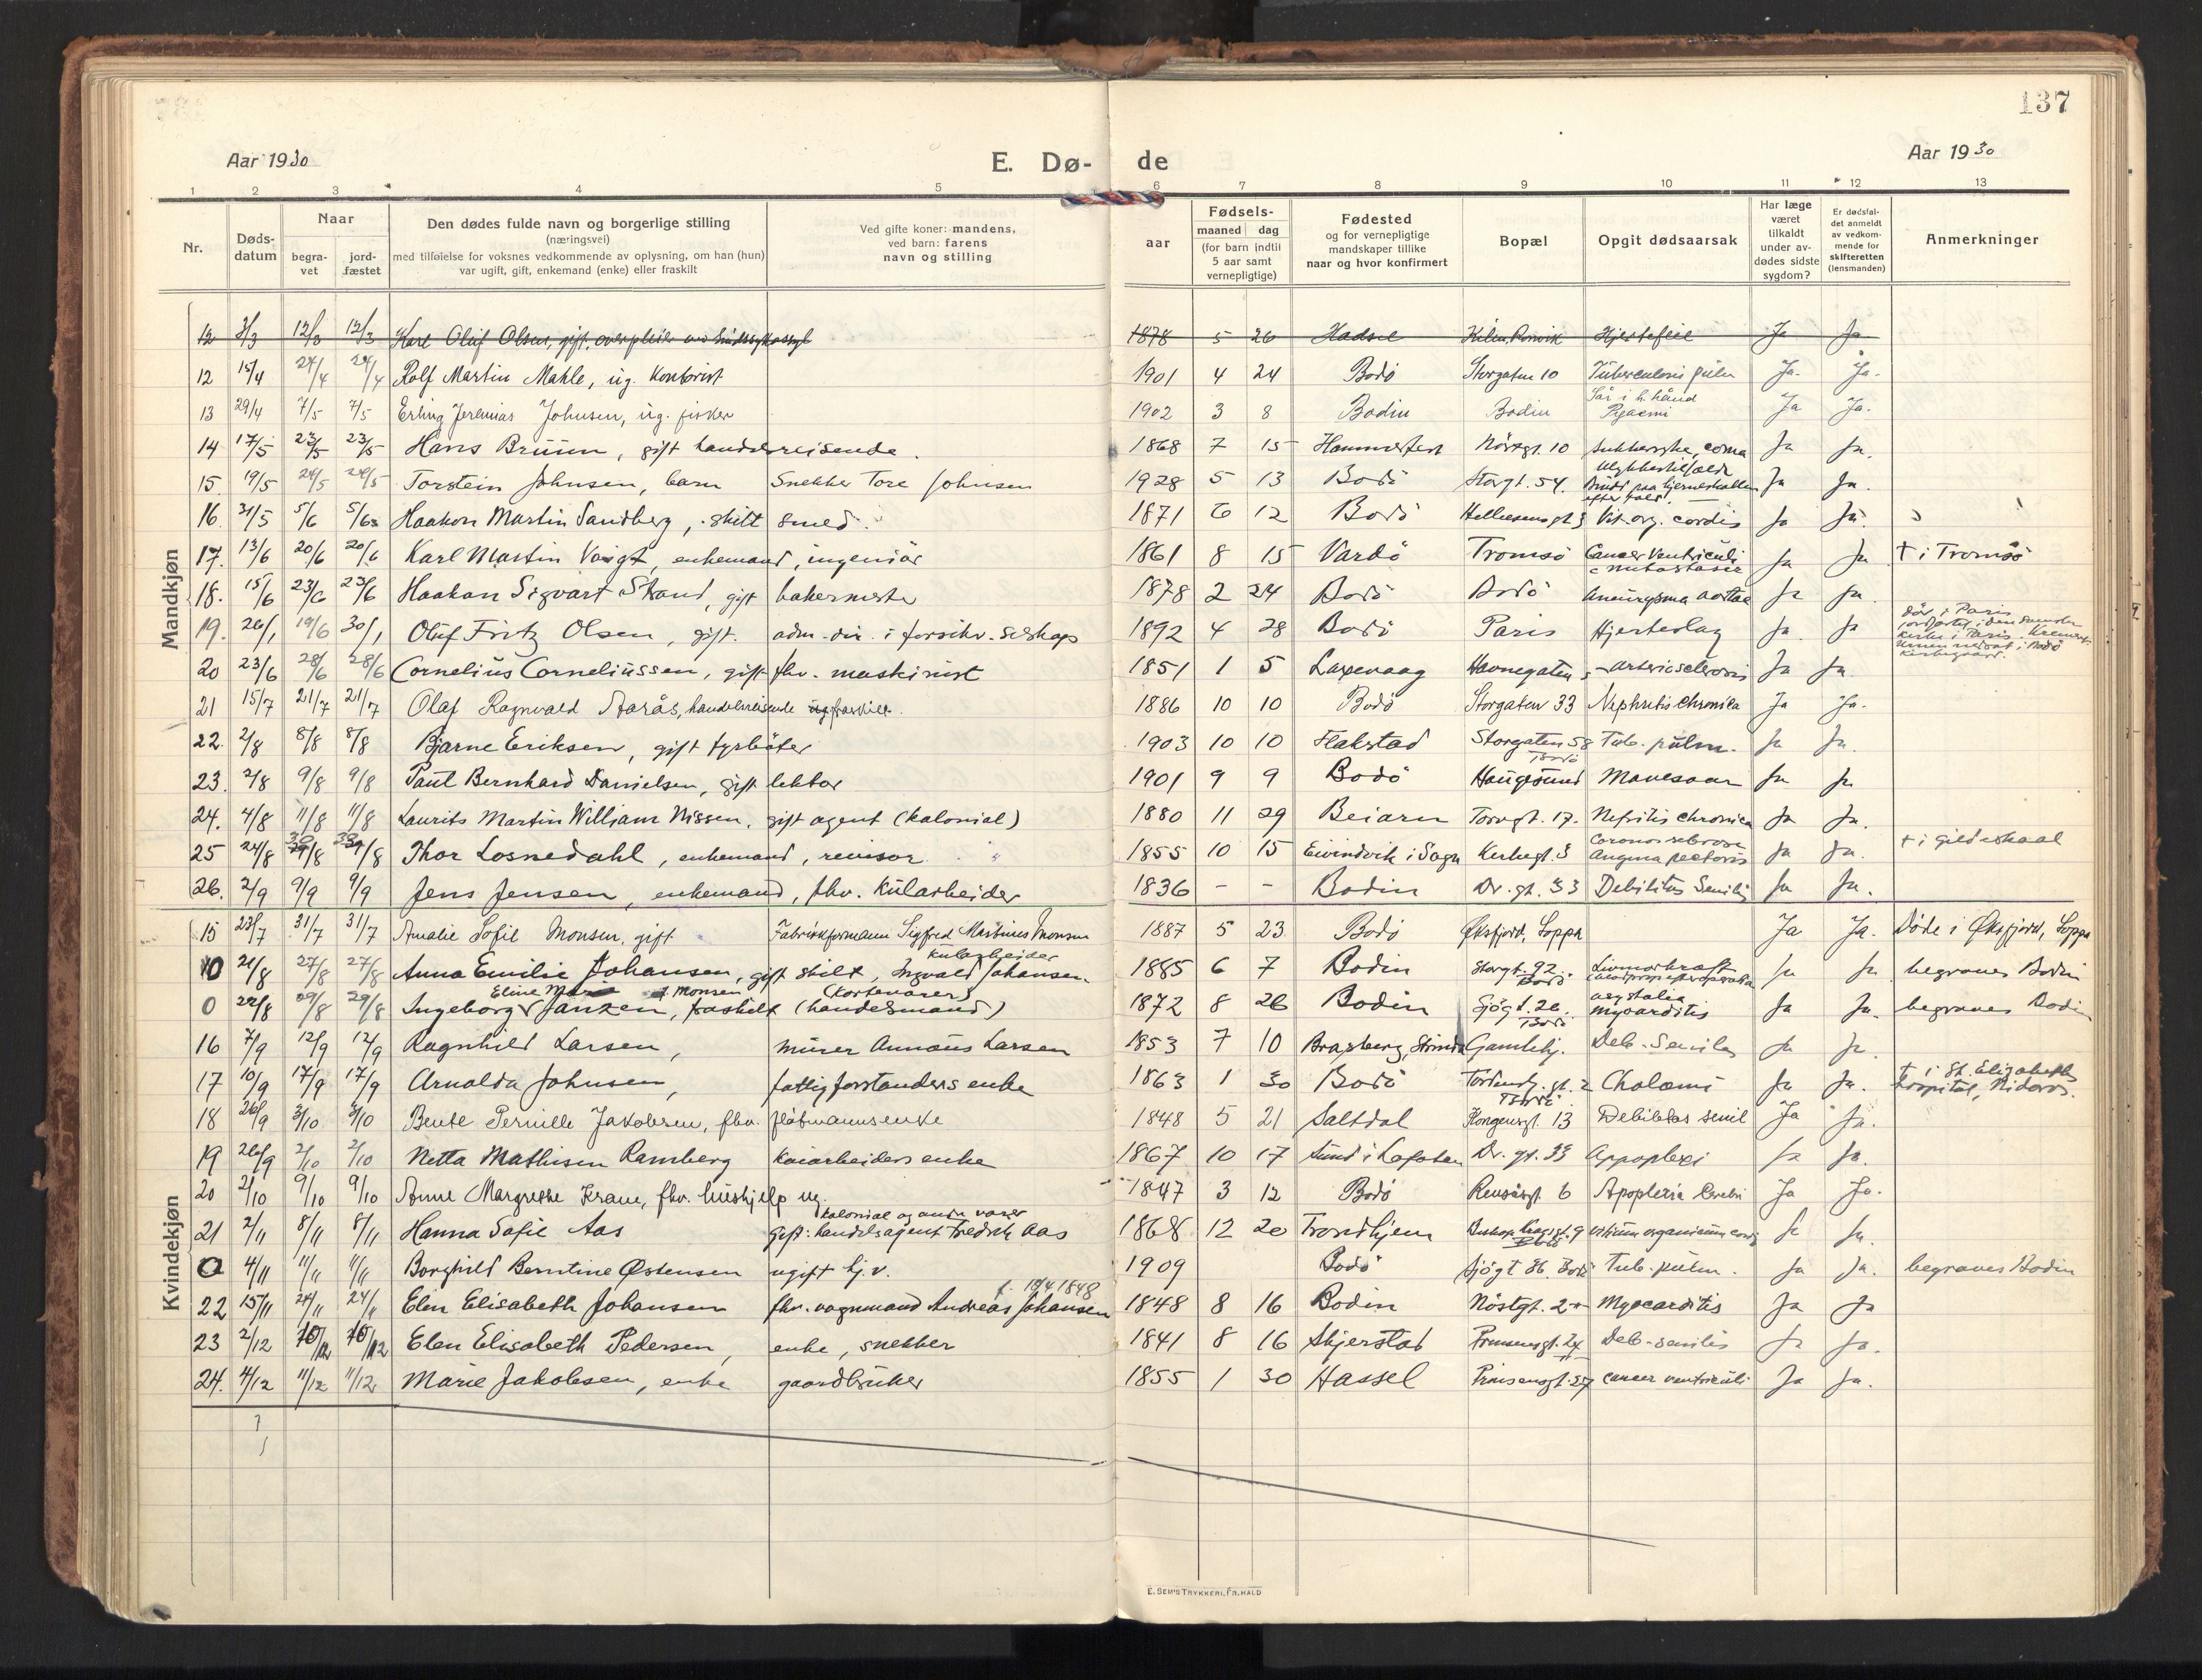 137
Aar 1930
E. Dø- de
Aar 1930
1 2 3 4 5 6 7 8 9 10 11 12 13
Nr.
Døds-
datum
Naar
begra-
vet
jord-
fæstet
Den dødes fulde navn og borgerlige stilling
(næringsvei)
med tilføielse for voksnes vedkommende av oplysning, om han (hun)
var ugift, gift, enkemand (enke) eller fraskilt
Ved gifte koner: mandens,
ved barn: farens
navn og stilling
aar
Fødsels-
maaned dag
(for barn indtil
5 aar samt
vernepligtige)
Fødested
og for vernepligtige
mandskaper tillike
naar og hvor konfirmert
Bopæl
Opgit dødsaarsak
Har læge
været
tilkaldt
under av-
dødes sidste
sygdom?
Er dødsfal-
det anmeldt
av vedkom-
mende for
skifteretten
(lensmanden)
Anmerkninger
Mandkjøn
12 3/3 12/3 12/3 Karl Oluf Olsen, gift, overpleier ved Sindssykeasyl 1878 5 26 Hadsel Rønvik Hjertefeil Ja Ja
12 15/4 24/4 24/4 Rolf Martin Mahle, ug. kontorist 1901 4 24 Bodö Storgaten 10 Tuberculosis pulm Ja Ja.
13 29/4 7/5 7/5 Erling Jeremias Johnsen, ug. fisker 1902 3 8 Bodin Bodin Sår i h. hånd Pyæmi Ja Ja.
14 17/5 23/5 23/5 Hans Bruun, gift handelsreisende. 1868 7 15 Hammerfest gt. 10 sukkersyke, coma Ja Ja.
15 19/5 24/5 24/5 Torstein Johnsen, barn Snekker Tore Johnsen 1928 5 13 Bodö Storgt. 54. Ulykkestilfælde Brudd paa hjerneskallen efter fald. Ja Ja.
16. 31/5 5/6 5/6 Haakon Martin Sandberg, skilt smed. 1871 6 12 Bodö Hellesensgt 3 Vit. org. cordis Ja Ja.
17. 13/6 20/6 20/6 Karl Martin Voigt, enkemand, ingeniör 1861 8 15 Vardö Tromsö Cancer Ventriculi c metastasis Ja Ja † i Tromsö
18. 15/6 23/6 23/6 Haakon Sigvart Strand, gift bakermester 1878 2 24 Bodö Bodö Aneurysma aortae Ja Ja.
19. 26/1 19/6 30/1 Oluf Fritz Olsen, gift. adm. dir. i forsikr. selskap 1892 4 28 Bodö Paris Hjerteslag Ja. Ja död i Paris
jordfæstet i den danske
kirke i Paris. Kremert.
Urnen nedsat i Bodö
kirkegaard.
20 23/6 28/6 28/6 Cornelius Corneliussen, gift fhv. maskinist 1851 1 5 Laxevaag Havnegaten 5 arteriosclerosis Ja Ja.
21 15/7 21/7 21/7 Olaf Ragnvald Aarås, handelsreisende ug fraskilt. 1886 10 10 Bodö Storgaten 33 Nephritis chronica Ja Ja.
22. 2/8 8/8 8/8 Bjarne Eriksen, gift fyrböter 1903 10 10 Flakstad Storgaten 58 Bodö Tub. pulm. Ja Ja.
23. 2/8 9/8 9/8 Paul Bernhard Danielsen, gift lektor 1901 9 9 Bodö Haugesund Mavesaar Ja Ja
24. 4/8 11/8 11/8 Laurits Martin William Nissen, gift agent (kolonial) 1880 11 29 Beiarn Torvgt. 17. Nefritis chronica Ja Ja.
25 24/8 30/8 30/8 Thor Losnedahl, enkemand, revisor 1855 10 15 Eivindvik i Sogn Kirkegt. 3 Angina pectoris Ja Ja. † i Gildeskaal
26. 2/9 9/9 9/9 Jens Jensen, enkemand, fhv. kularbeider 1836 - - Bodin Dr. gt. 33 Debilitas Senilis Ja Ja.
Kvindekjøn
15 23/7 31/7 31/7 Amalie Sofie Monsen, gift Fabrikkformann Sigfred Martinus Monsen 1887 5 23 Bodö Øksfjord, Loppa Ja Ja. Döde i Øksfjord, Loppa
0 21/8 27/8 27/8 Anna Emilie Johansen, gift skilt, kularbeider Ingvald Johansen. 1885 6 7 Bodin Storgt. 92 Bodö Livmorkræft Ja Ja begraves Bodin
0 22/8 29/8 29/8 Ingeborg Eline Marie Janzen f. Monsen, fraskilt (kortevarer) (handelsmand) 1872 8 26 Bodin Sjögt. 20. Bodö myocarditis Ja Ja. begraves Bodin
16 7/9 12/9 12/9 Ragnhild Larsen, murer Annæus Larsen 1853 7 10 Bragberg, Strinda Gamlehj. Deb. Senilis Ja Ja.
17 10/9 17/9 17/9 Arnolda Johnsen, fattigforstanders enke 1863 1 30 Bodö Tordensk. gt. 2 Bodö Cholæmi Ja Ja. † i St. Elisabeths
hospital, Nidaros.
18 26/9 3/10 3/10 Bente Pernille Jakobsen, fhv. fløtmannsenke 1848 5 21 Saltdal Kongensgt. 13 Debilitas senil Ja Ja.
19 26/9 2/10 2/10 Netta Mathisen Ramberg kaiarbeiders enke 1867 10 17 Sund i Lofoten Dr. gt. 33 Appoplexi Ja Ja.
20 2/10 9/10 9/10 Anne Margrethe Krane, fhv. hushjelp ug. 1847 3 12 Bodö Rensåsgt. 6 Apoplexia cerebri Ja Ja.
21 2/11 8/11 8/11 Hanna Sofie Aas kolonial og andre varer Gift: handelsagent Fredrik Aas 1868 12 20 Trondhjem Biskop Kroghsgt. 9 Bodö Vitium organicum cordis Ja Ja.
0 4/11 11/11 11/11 Borghild Berntine Østensen ugift hj. v. 1909 Bodö Sjögt 36. Bodö Tub. pulm. Ja Ja. begraves Bodin
22 15/11 24/11 24/11 Elen Elisabeth Johansen fhv. vognmand Andreas Johansen f. 12/4 1848 1848 8 16 Bodin gt. 2 Myocarditis Ja Ja
23 2/12 10/12 10/12 Elen Elisabeth Pedersen, enke, snekker 1841 8 16 Skjerstad Prinsensgt. 24 Deb. senilis Ja Ja.
24. 4/12 11/12 11/12 Marie Jakobsen, enke gaardbruker 1855 1 30 Hassel Prinsensgt. 27 cancer ventriculi Ja Ja.
E. SEM'S TRYKKERI, FR.HALD